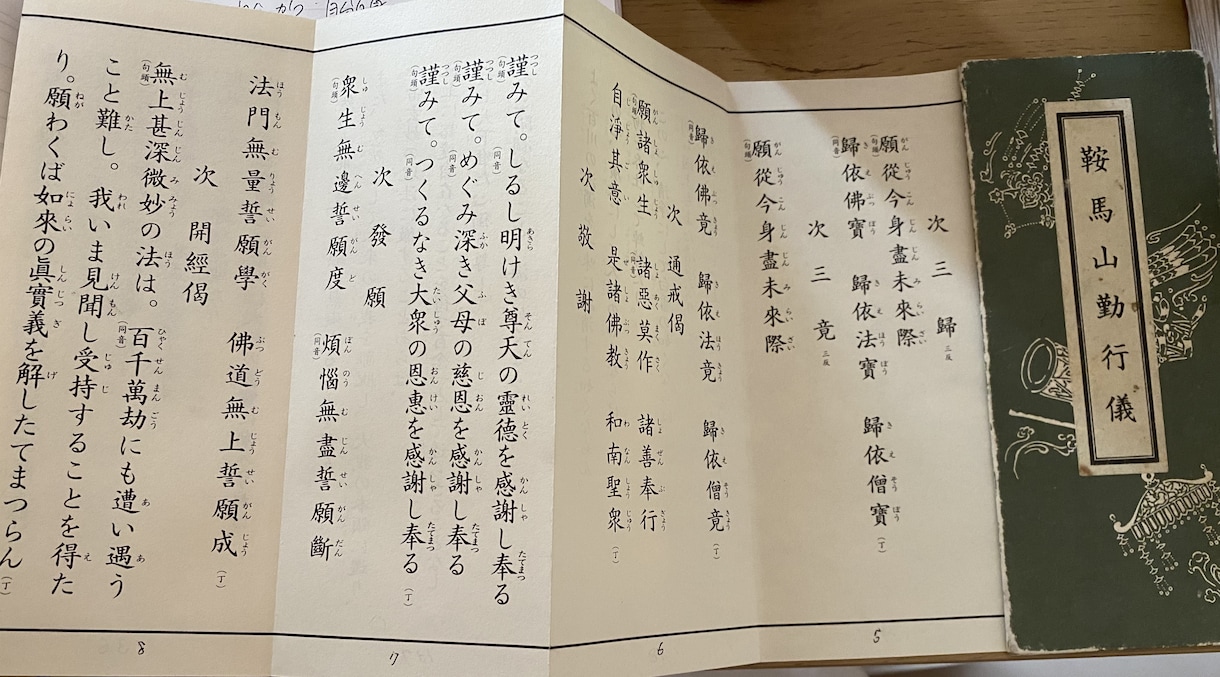 鞍馬山勤行儀
次 三歸 三反
願從今身盡未來際
歸依佛寶 歸依法寶 歸依僧寶 (丁)
次 三竟 三反
願從今身盡未來際
5
歸依佛竟 歸依法竟 歸依僧竟 (丁)
次 通戒偈
願諸衆生 諸惡莫作 諸善奉行
自淨其意 是諸佛教 和南聖衆 (丁)
次 敬謝
6
謹みて。しるし明けき尊天の靈德を感謝し奉る
謹みて。めぐみ深き父母の慈恩を感謝し奉る
謹みて。つくるなき大衆の恩惠を感謝し奉る (丁)
次 發願
衆生無邊誓願度 煩惱無盡誓願斷
7
法門無量誓願學 佛道無上誓願成 (丁)
次 開經偈
無上甚深微妙の法は。百千萬劫にも遭い遇う
こと難し。我いま見聞し受持することを得た
り。願わくば如來の眞實義を解したてまつらん (丁)
8